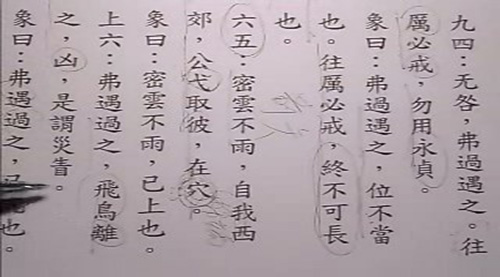 九四：无咎，弗過遇之。往
厲必戒，勿用永貞。
象曰：弗過遇之，位不當
也。往厲必戒，終不可長
也。
六五：密雲不雨，自我西
郊，公弋取彼，在穴。
象曰：密雲不雨，已上也。
上六：弗遇過之，飛鳥離
之，凶，是謂災眚。
象曰：弗遇過之，已也。